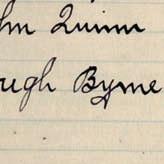 hn Quinn
ugh Byrne